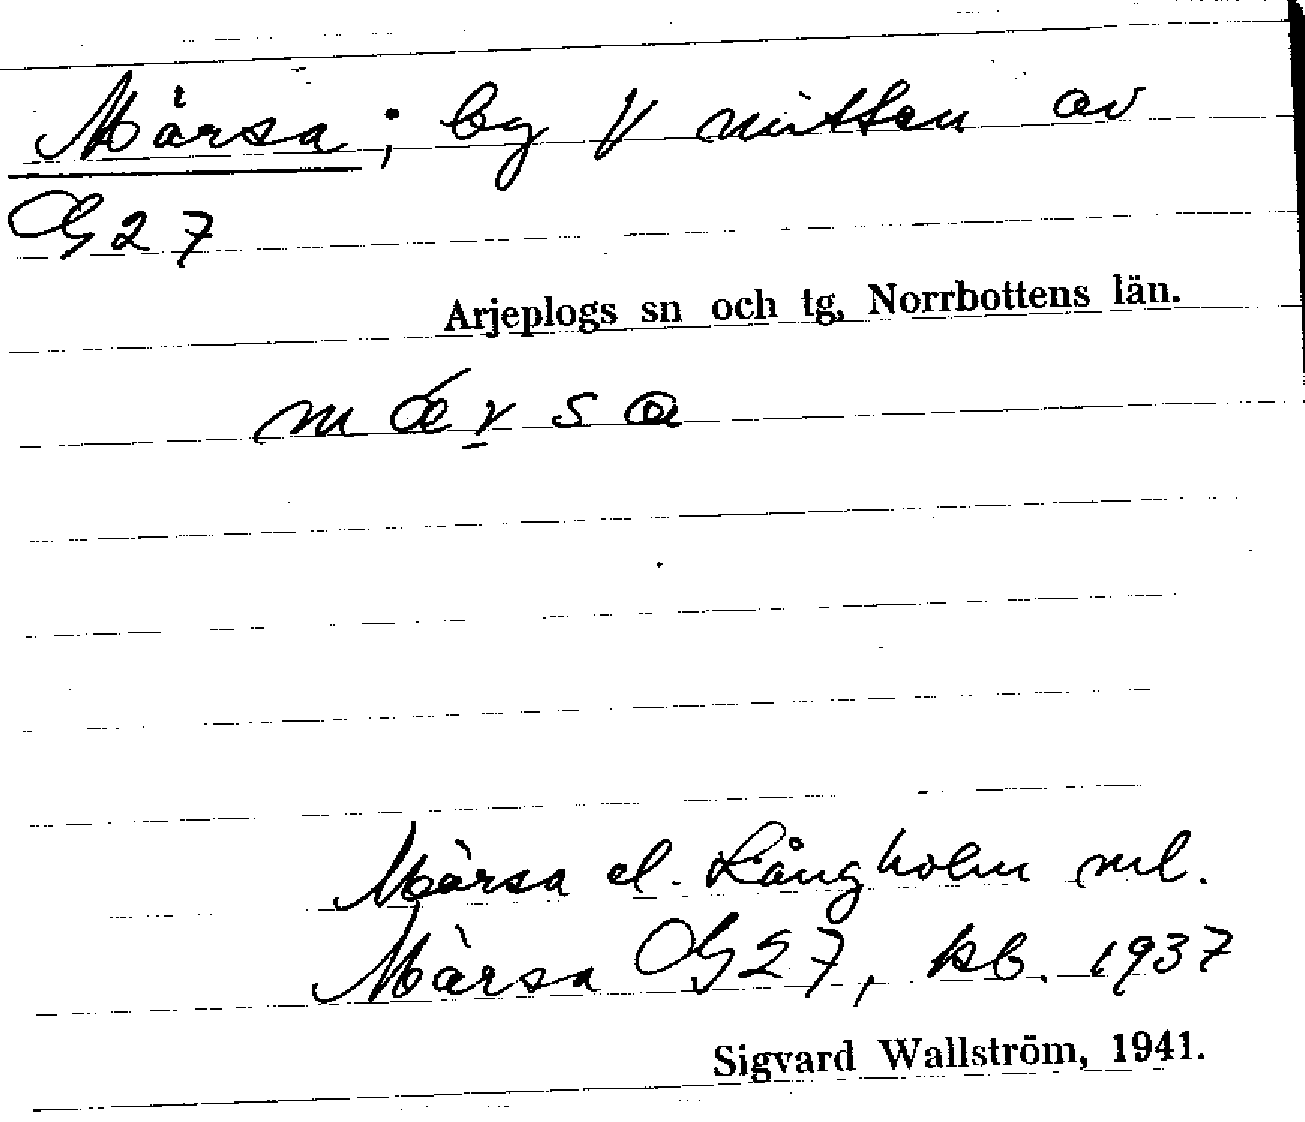 Märsa; by V mitten av
G27
Arjeplogs sn och tg, Norrbottens län.
mǽrsa
Märsa el. Långholm ml.
Märsa G27, kb. 1937
Sigvard Wallström, 1941.